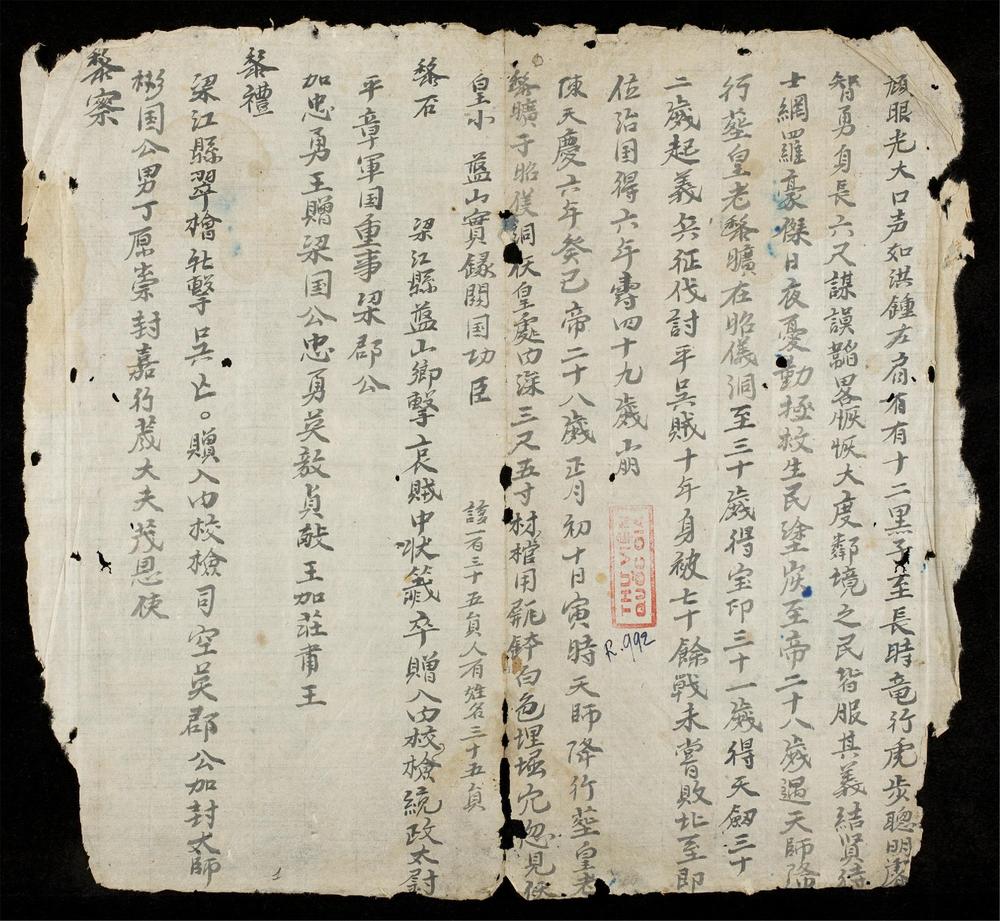 頎眼光大口声如洪鍾左肩有有十二黒子至長時竜行虎步聰明濬
智勇身長六尺謀謨韜畧恢恢大度鄰境之民皆服其義結賢待
士網羅豪傑日夜憂勤拯救生民塗炭至帝二十八歲遇天師降
行塟皇老黎曠在昭儀洞至三十歲得宝印三十一歲得天劎三十
二歲起義兵征伐討平吳賊十年身被七十餘戰未嘗敗北至即
位治国得六年壽四十九歲崩
陳天慶六年癸巳帝二十八歲正月初十日寅時天師降行塟皇老
黎曠于昭儀洞伏皇處内深三尺五寸材棺用甁鉢白色埋堀穴忽見伏
皇小 藍山實録開国功臣 該一百三十五員人有姓名三十五員
黎石 梁江縣藍山鄉擊哀賊中状箭卒贈入内校檢統政太尉
平章軍国重事梁郡公
加忠勇王贈梁国公忠勇英毅貞敵王加莊甫王
黎禮
梁江縣翠檜社擊吳亡。贈入内校檢司空英郡公加封太師
彬国公男丁原崇封嘉行茂大夫茂恩使
黎察
THU VIEN
QUOC GIA
R.992